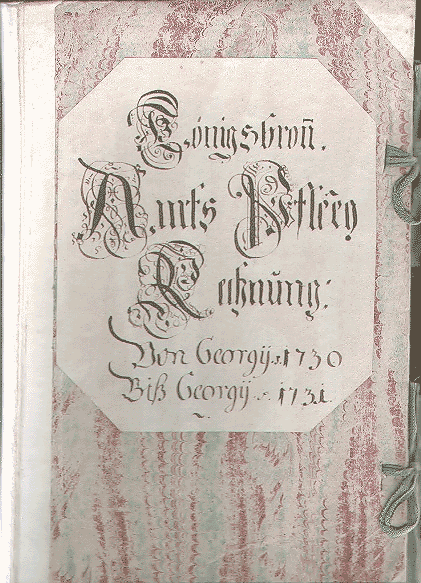 Königsbroñ.
Ambts Pfleeg
Rechnung:
Von Georgij a. 1730
Biß Georgij a. 1731.